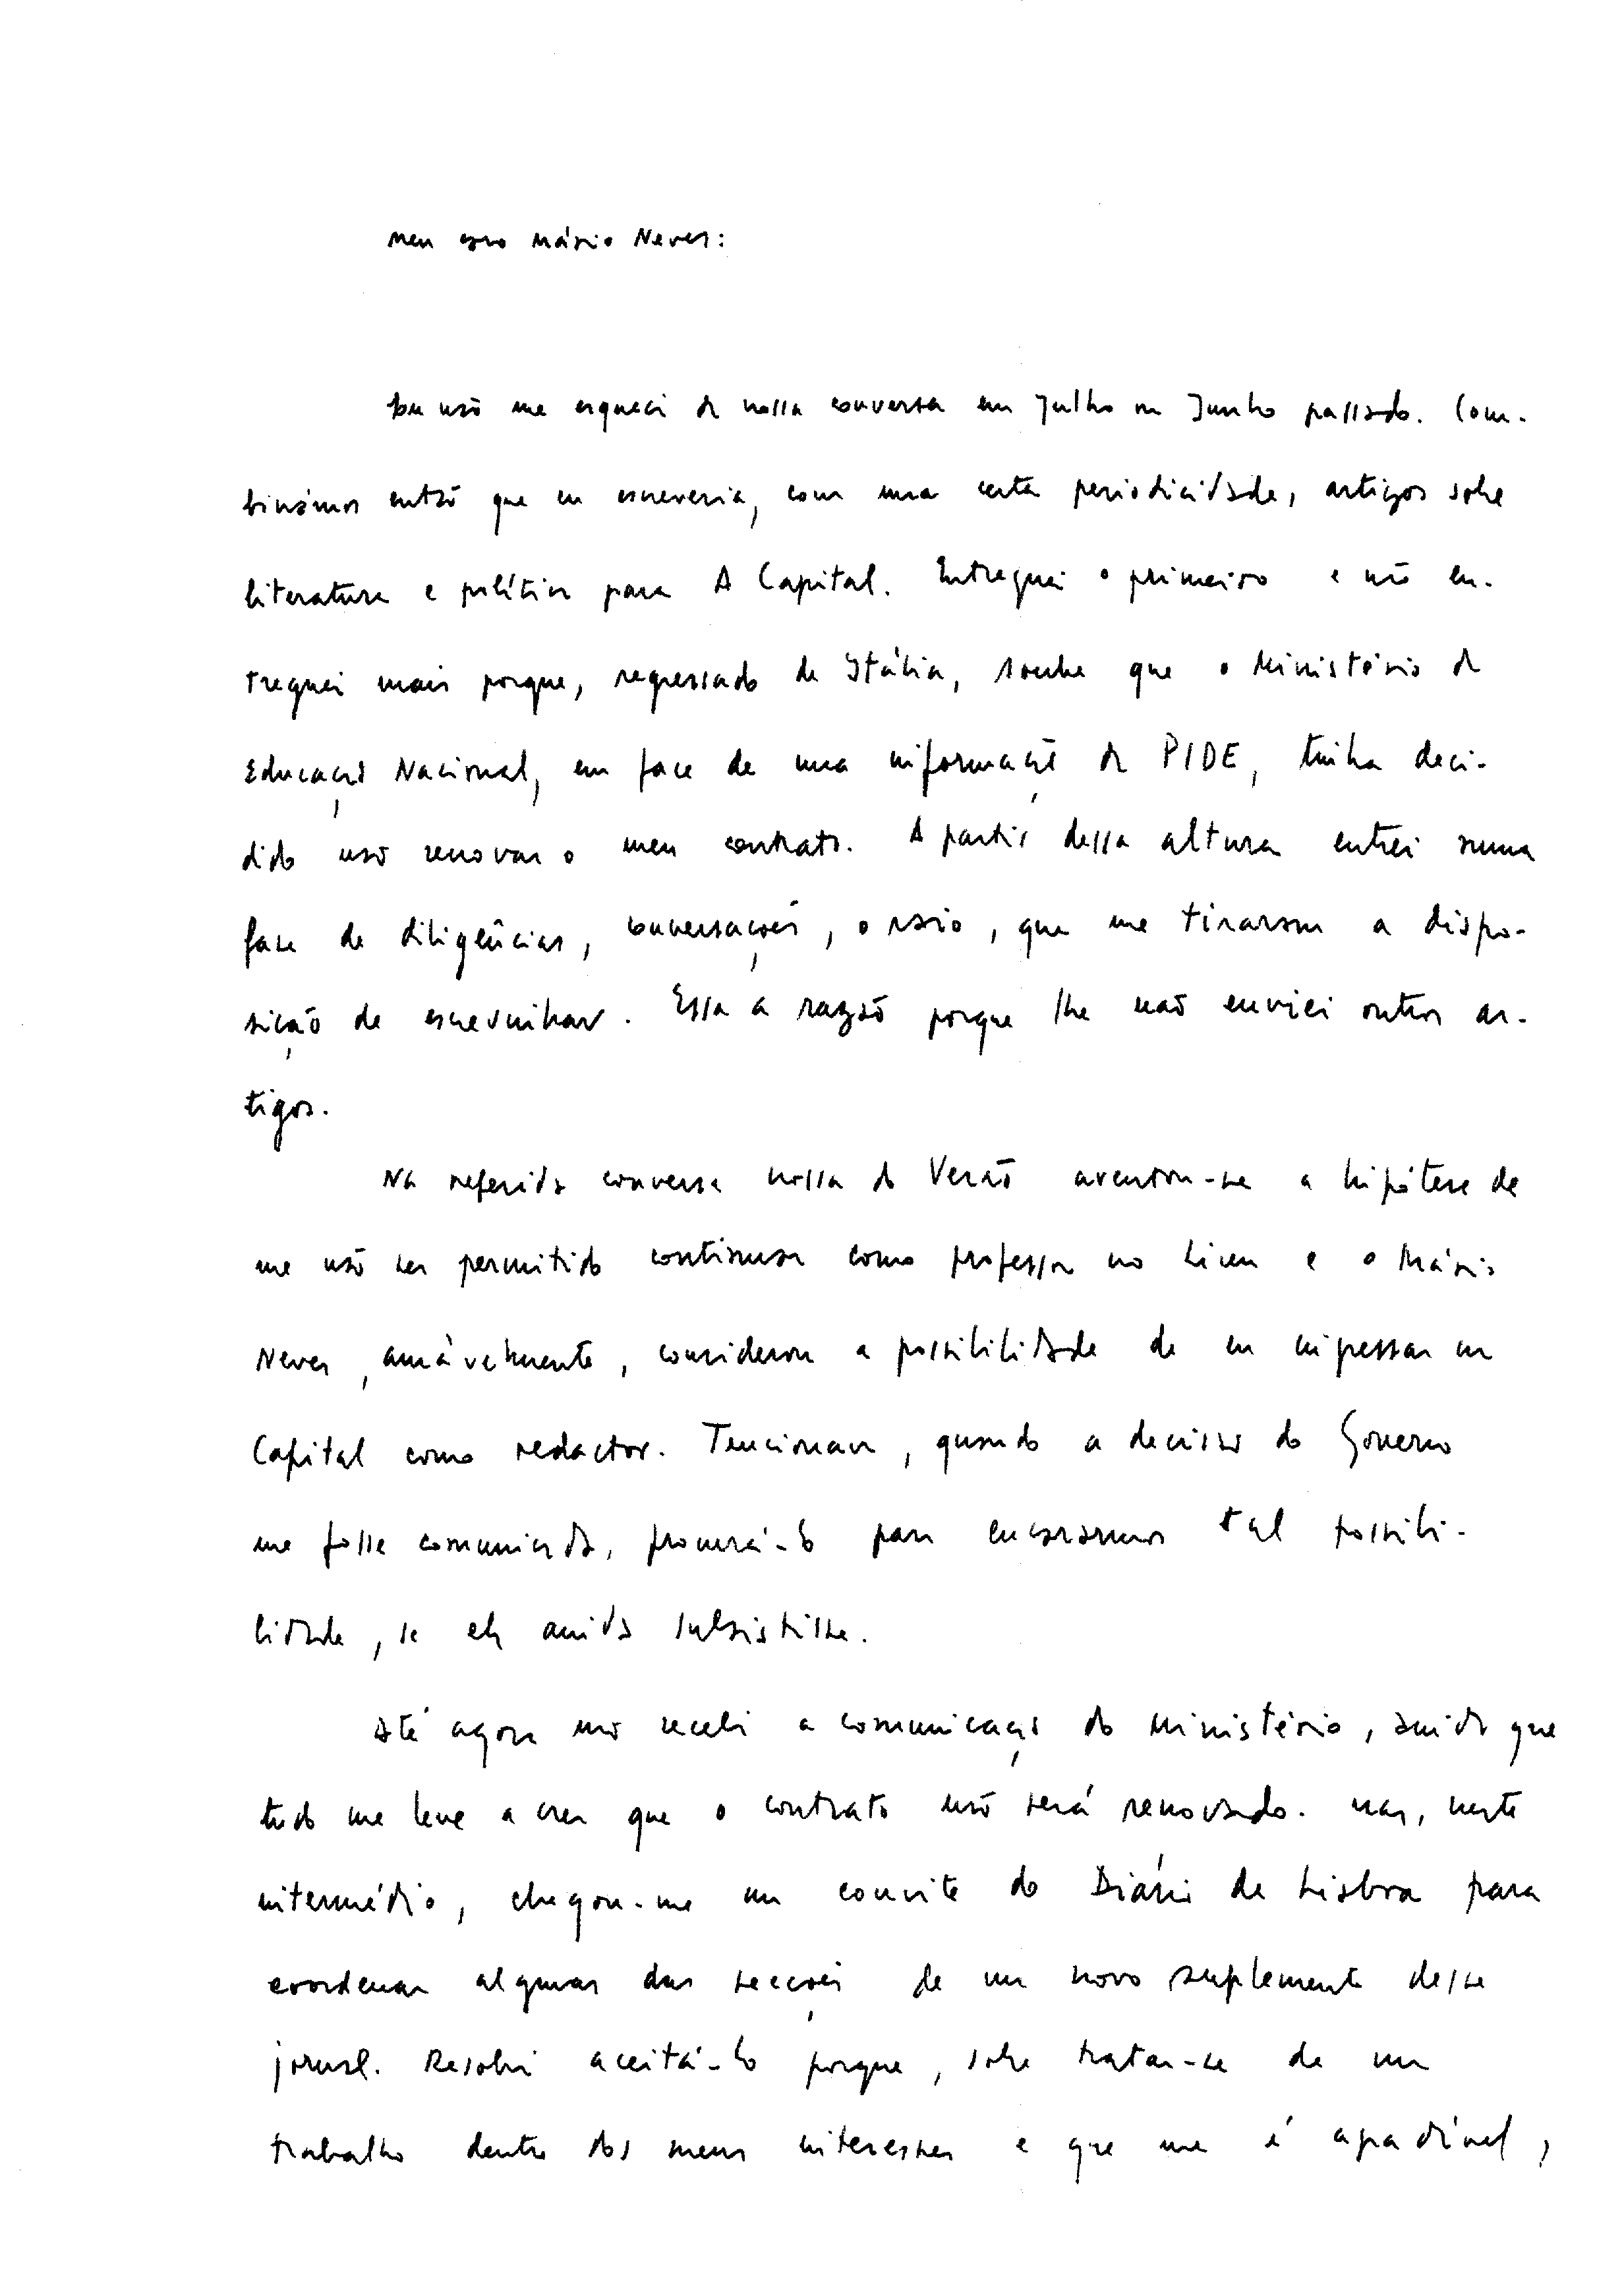 Meu caro Mário Neves:
Eu não me esqueci da nossa conversa em Julho ou Junho passado. Com-
binámos então que eu escreveria, com uma certa periodicidade, artigos sobre
literatura e política para A Capital. Entreguei o primeiro e não en-
treguei mais porque, regressado de Itália, soube que o Ministério da
Educação Nacional, em face de uma informação da PIDE, tinha deci-
dido não renovar o meu contrato. A partir dessa altura entrei numa
fase de diligências, conversações, o rsio, que me tiraram a dispo-
sição de escrevinhar. Essa a razão porque lhe não enviei outros ar-
tigos.
Na referida conversa nossa do Verão aventou-se a hipótese de
me não ser permitido continuar como professor no Liceu e o Mário
Neves, amàvelmente, considerou a possibilidade de eu ingressar na
Capital como redactor. Tencionava, quando a decisão do Governo
me fosse comunicada, procurá-lo para encararmos tal possibi-
lidade, se ela ainda subsistisse.
Até agora não recebi a comunicação do Ministério, ainda que
tudo me leve a crer que o contrato não será renovado. Mas, neste
intermédio, chegou-me um convite do Diário de Lisboa para
coordenar algumas das secções de um novo suplemento desse
jornal. Resolvi aceitá-lo porque, sobre tratar-se de um
trabalho dentro dos meus interesses e que me é agradável,